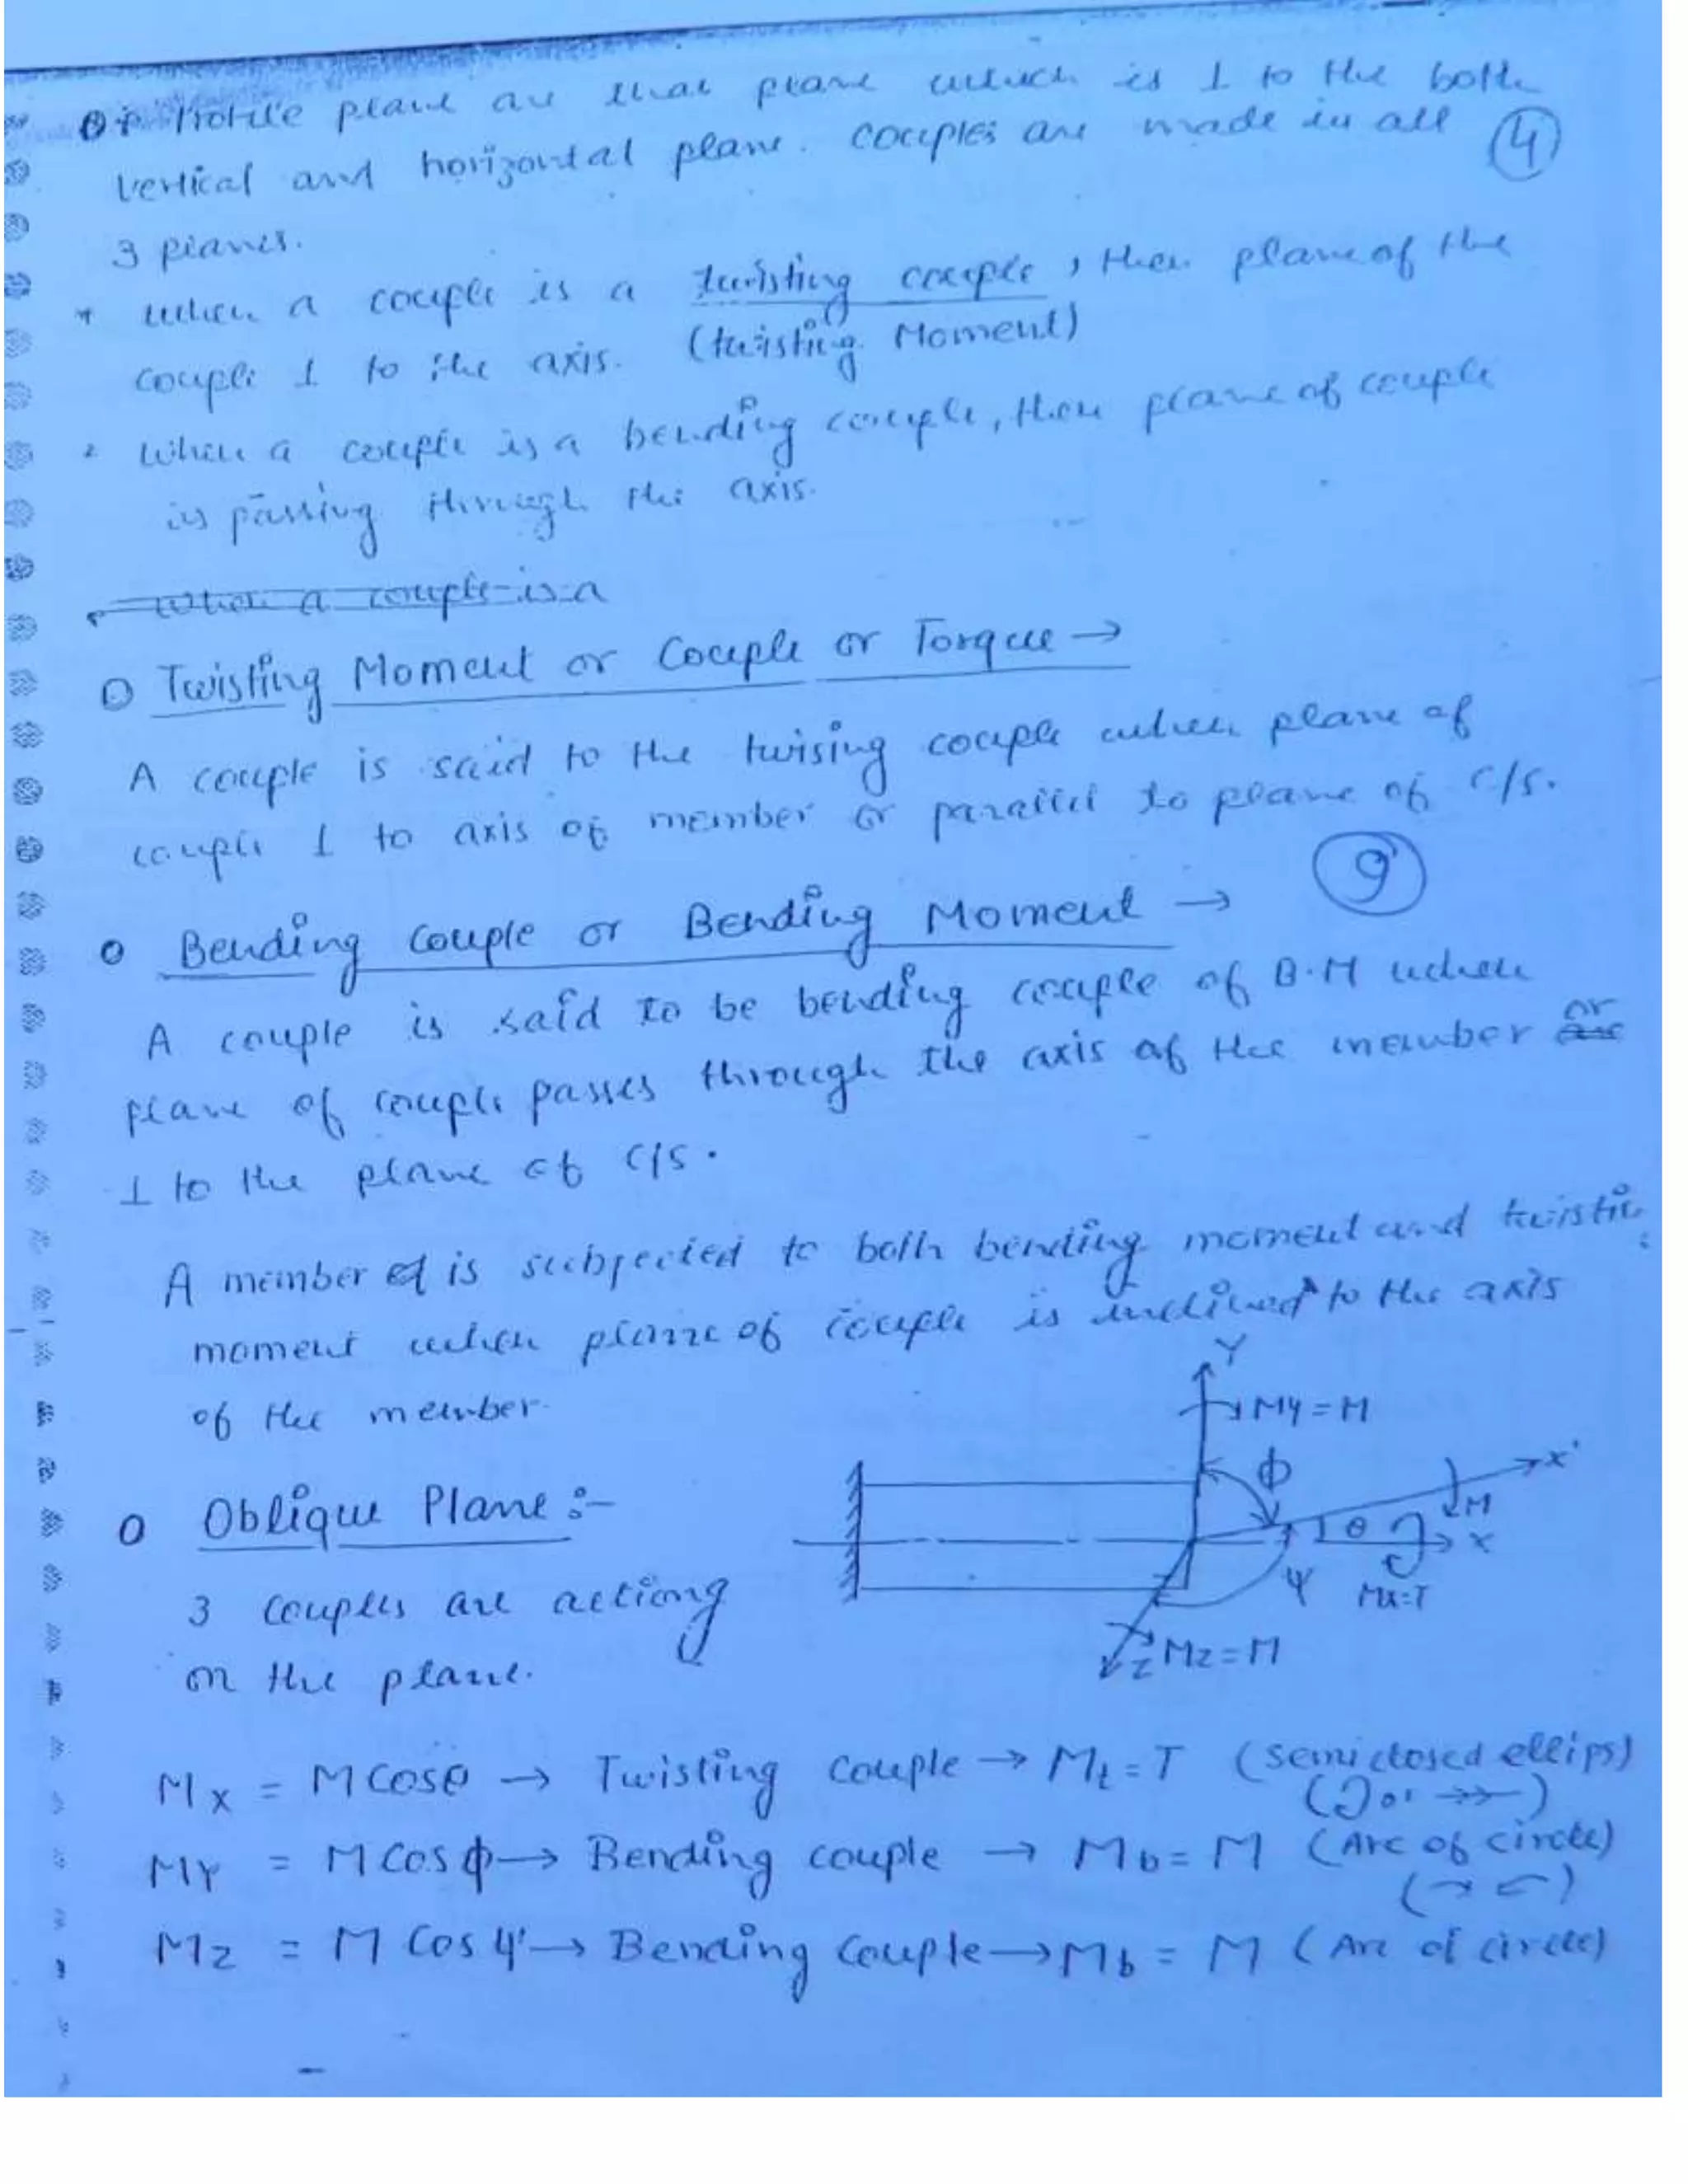 Profile plane are that plane which is ⊥ to the both
vertical and horizontal plane. couples are made in all
4
3 planes.
* when a couple is a twisting couple, then plane of the
couple ⊥ to the axis. (twisting Moment)
When a couple is a bending couple, then plane of couple
is passing through the axis.
When a couple is a
Twisting Moment or Couple or Torque →
A couple is said to the twising couple when plane of
couple ⊥ to axis of member or parallel to plane of c/s.
9
Bending Couple or Bending Moment →
A couple is said to be bending couple of B.M when
or
plane of couple passes through the axis of the member are
⊥ to the plane of c/s.
A member is subjected to both bending moment and twisting
moment when plane of couple is inclined to the axis
of the member.
Y
My = M
ϕ
X'
M
θ
X
ψ
Mx=T
Z
Mz = M
Oblique Plane :-
3 couples are actiong
on the plane.
Mx = M Cosθ → Twisting Couple → Mt = T (semi closed ellips)
or →→)
MY = M Cos ϕ → Bending couple → Mb = M (Arc of circle)
Mz = M Cos ψ → Bending Couple → Mb = M (Arc of circle)